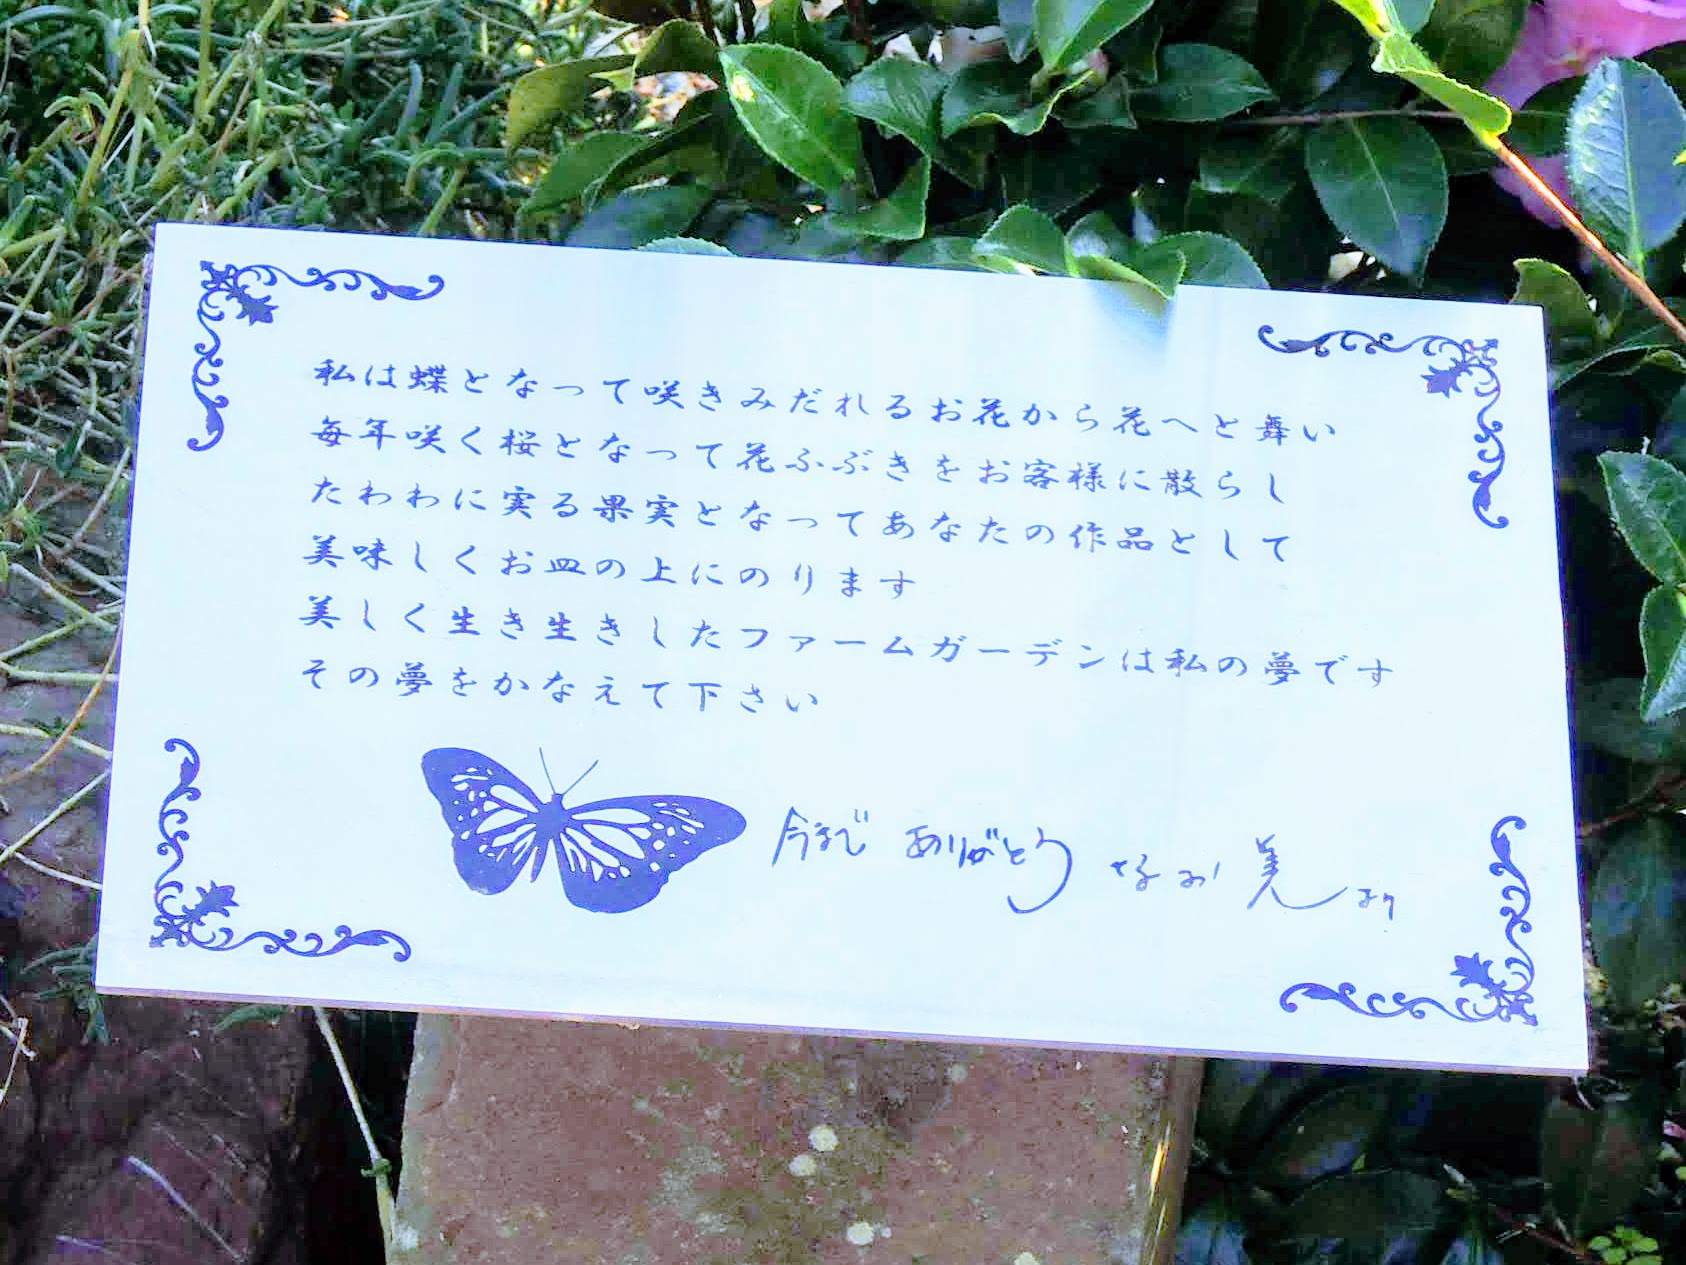 私は蝶となって咲きみだれるお花から花へと舞い
毎年咲く桜となって花ふぶきをお客様に散らし
たわわに実る果実となってあなたの作品として
美味しくお皿の上にのります
美しく生き生きしたファームガーデンは私の夢です
その夢をかなえて下さい
今まで ありがとう